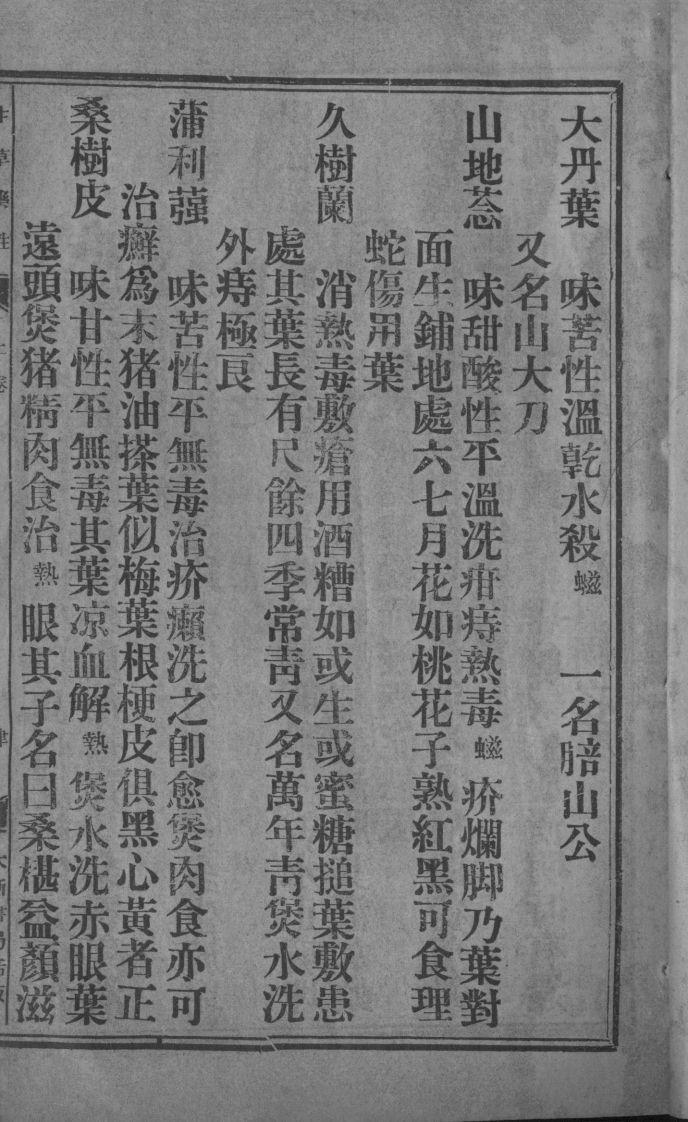 大丹葉　味苦性溫乾水殺蟻　一名膪山公
又名山大刀
山地菍　味甜酸性平溫洗疳痔熱毒蟻疥爛脚乃葉對
面生鋪地處六七月花如桃花子熟紅黑可食理
蛇傷用葉
久樹蘭　消熱毒敷瘡用酒糟如或生或蜜糖搥葉敷患
處其葉長有尺餘四季常靑又名萬年靑煲水洗
外痔極良
蒲利蔃　味苦性平無毒治疥癩洗之卽愈煲肉食亦可
治癬爲末猪油搽葉似梅葉根梗皮俱黑心黃者正
桑樹皮　味甘性平無毒其葉凉血解熱煲水洗赤眼葉
遠頭煲猪精肉食治熱眼其子名曰桑椹益顏滋